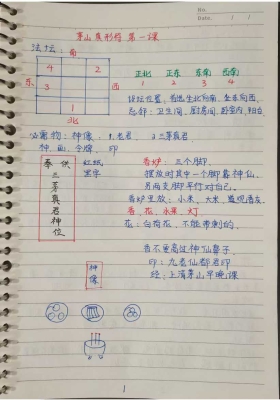 No.
Date / /
茅山真形符 第一课
法坛: 南
4 2
东 3 西
1
北
正北 正东 东南 西南
1 3 4 2
法坛位置, 首选坐北向南, 坐东向西
忌邻: 卫生间, 厨房间, 卧室内, 阳台
必需物: 神像, 1.老君, 2.三茅真君
神, 画, 令牌, 印
奉供三茅真君神位
红纸
黑字
香炉, 三个脚,
摆放时其中一个脚靠神仙
另两支脚平行对自己.
香炉里放: 小米, 大米,
香, 花, 水果, 灯
花: 白荷花, 不能带刺的.
神像
香不要高过神仙鼻子
印: 九老仙都君印
经: 上清茅山早晚课
1